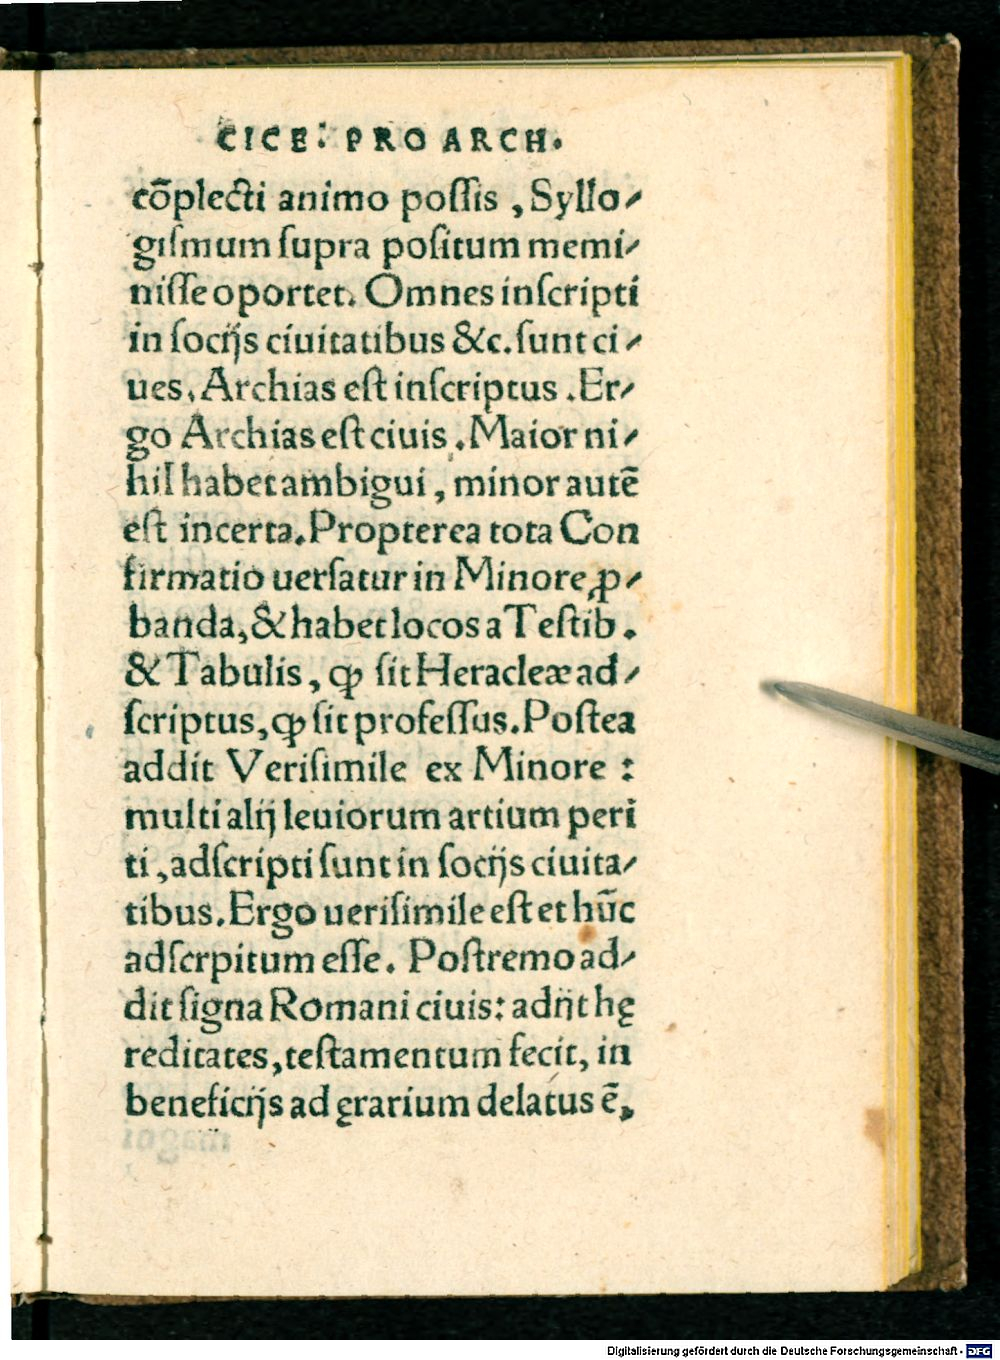 CICE: PRO ARCH.
cõplecti animo poſſis , Syllo⸗
giſmum ſupra poſitum memi⸗
niſſe oportet. Omnes inſcripti
in ſocijs ciuitatibus &c. ſunt ci⸗
ues, Archias eſt inſcriptus . Er⸗
go Archias eſt ciuis . Maior ni⸗
hil habet ambigui , minor autẽ
eſt incerta. Propterea tota Con
firmatio uerſatur in Minore ꝓ⸗
banda, & habet locos a Teſtib .
& Tabulis , ꝙ ſit Heracleæ ad⸗
ſcriptus, ꝙ ſit profeſſus. Poſtea
addit Veriſimile ex Minore :
multi alij leuiorum artium peri
ti , adſcripti ſunt in ſocijs ciuita⸗
tibus. Ergo ueriſimile eſt et hũc
adſcrpitum eſſe . Poſtremo ad⸗
dit ſigna Romani ciuis: adijt hę
reditates, teſtamentum fecit, in
beneficijs ad ęrarium delatus ẽ,
Digitalisierung gefördert durch die Deutsche Forschungsgemeinschaft - DFG